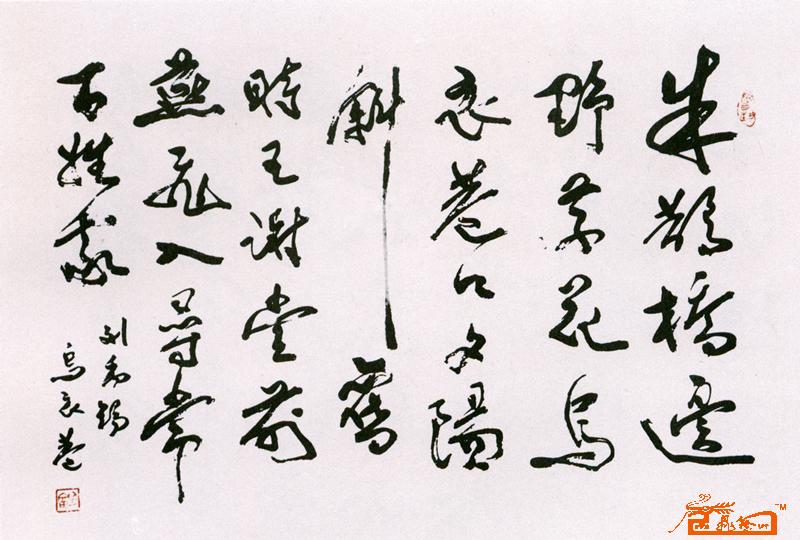 朱鵲橋邊
野草花烏
衣巷口夕陽
斜舊
時王謝堂前
燕飛入尋常
百姓家
刘禹錫
烏衣巷